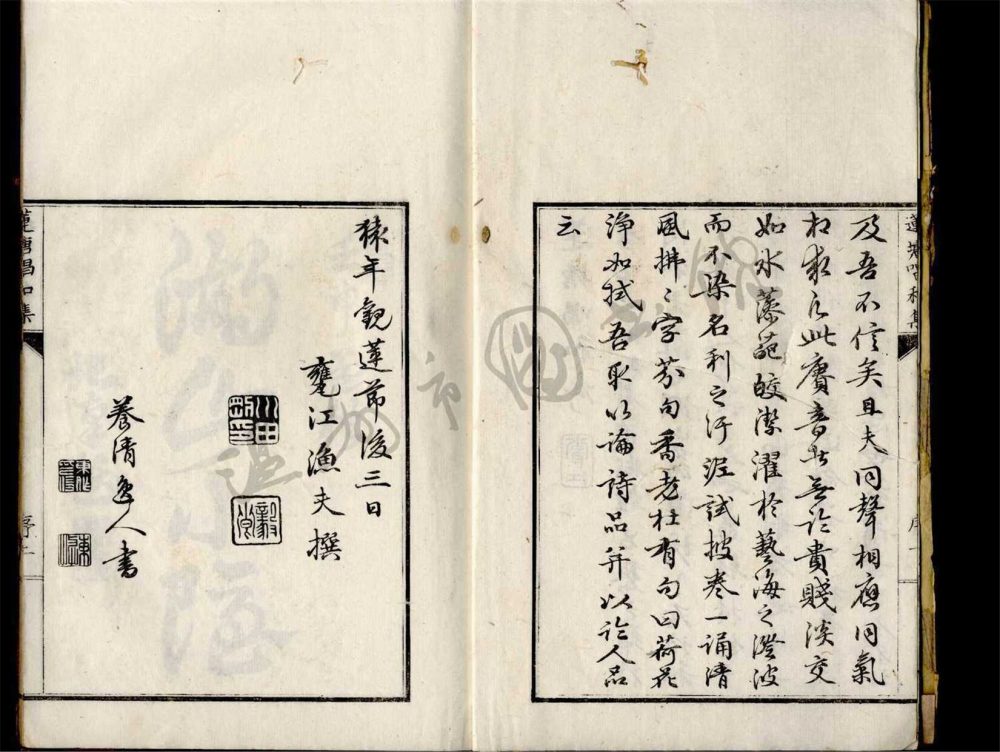 蓮塘唱和集
及吾不信矣且夫同聲相應同氣
相求凡此賡音者無論貴賤淡交
如水藻葩皎潔濯於藝海之澄波
而不染名利之汙泥試披卷一誦清
風拂〻字芬句香老杜有句曰荷花
淨如拭吾取以論詩品并以論人品
云
猿年觀蓮節後三日
甕江漁夫撰
川田剛印
毅卿
養清逸人書
蓮塘唱和集
序二
温州市图书馆